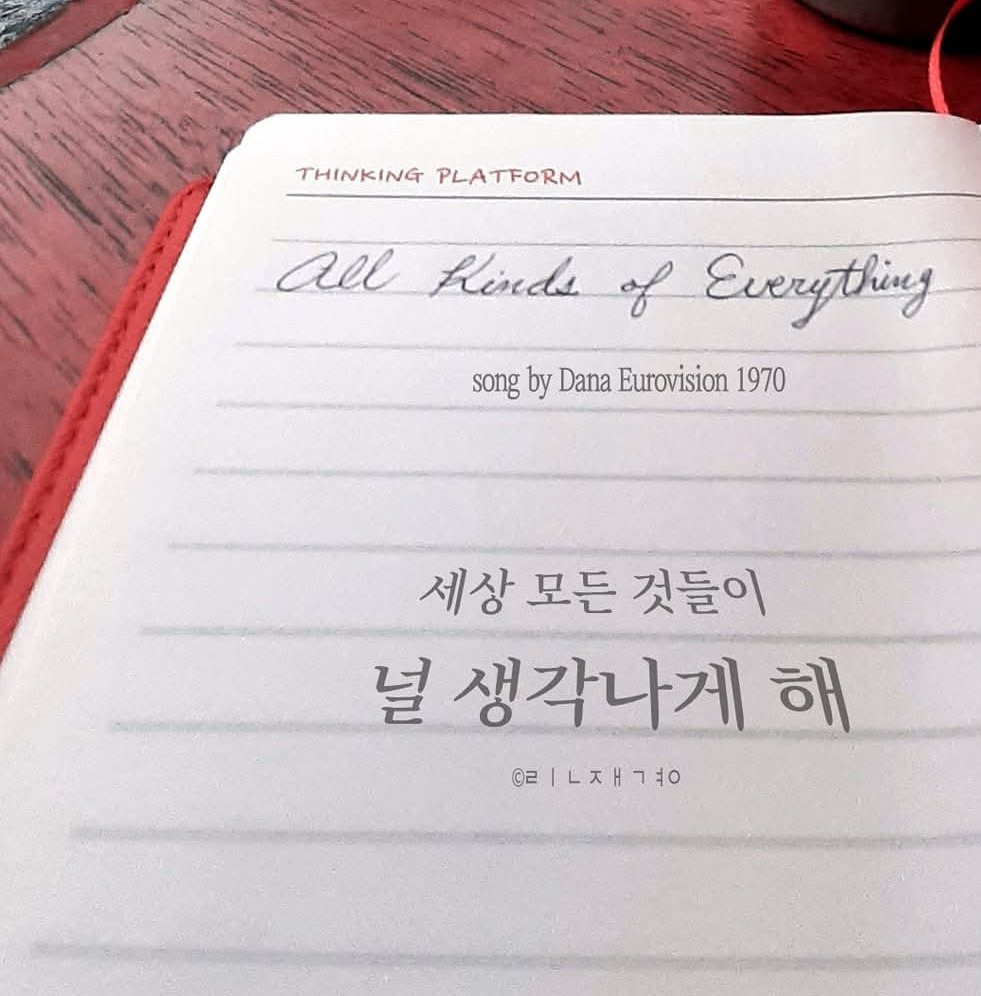 THINKING PLATFORM
All Kinds of Everything
song by Dana Eurovision 1970
세상 모든 것들이
널 생각나게 해
©ㄹㅣㄴㅈㅐㄱㅕㅇ